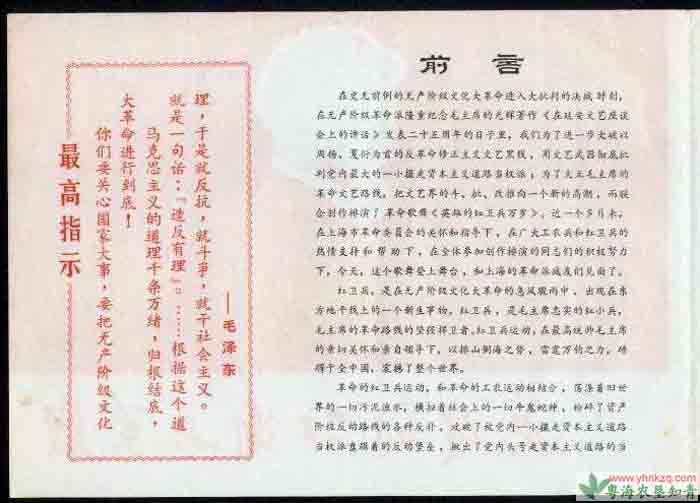 最高指示
你们要关心国家大事，要把无产阶级文化
大革命进行到底！
马克思主义的道理千条万绪，归根结底，
就是一句话：“造反有理”。……根据这个道
理，于是就反抗，就斗争，就干社会主义。
——毛泽东
前言
在史无前例的无产阶级文化大革命进入大批判的决战时刻，
在无产阶级革命派隆重纪念毛主席的光辉著作《在延安文艺座谈
会上的讲话》发表二十五周年的日子里，我们为了进一步大破以
周扬、夏衍为首的反革命修正主义文艺黑线，用文艺武器彻底批
判党内最大的一小撮走资本主义道路当权派；为了大立毛主席的
革命文艺路线，把文艺界的斗、批、改推向一个新的高潮，而联
合创作排演了革命歌舞《英雄的红卫兵万岁》。近一个多月来，
在上海市革命委员会的关怀和指导下，在广大工农兵和红卫兵的
热情支持和帮助下，在全体参加创作排演的同志们的积极努力
下，今天，这个歌舞登上舞台，和上海的革命派战友们见面了。
红卫兵，是在无产阶级文化大革命的急风骤雨中，出现在东
方地平线上的一个新生事物。红卫兵，是毛主席忠实的红小兵，
毛主席的革命路线的坚强捍卫者。红卫兵运动，在最高统帅毛主席
的亲切关怀和亲自领导下，以排山倒海之势，雷霆万钧之力，磅
礴于全中国，震撼了整个世界。
革命的红卫兵运动，和革命的工农运动相结合，荡涤着旧世
界的一切污泥浊水，横扫着社会上的一切牛鬼蛇神，粉碎了资产
阶级反动路线的各种反扑，攻破了被党内一小撮走资本主义道路
当权派盘踞着的反动堡垒，揪出了党内头号走资本主义道路的当
www.yhnkzq.com
粤海农垦知青